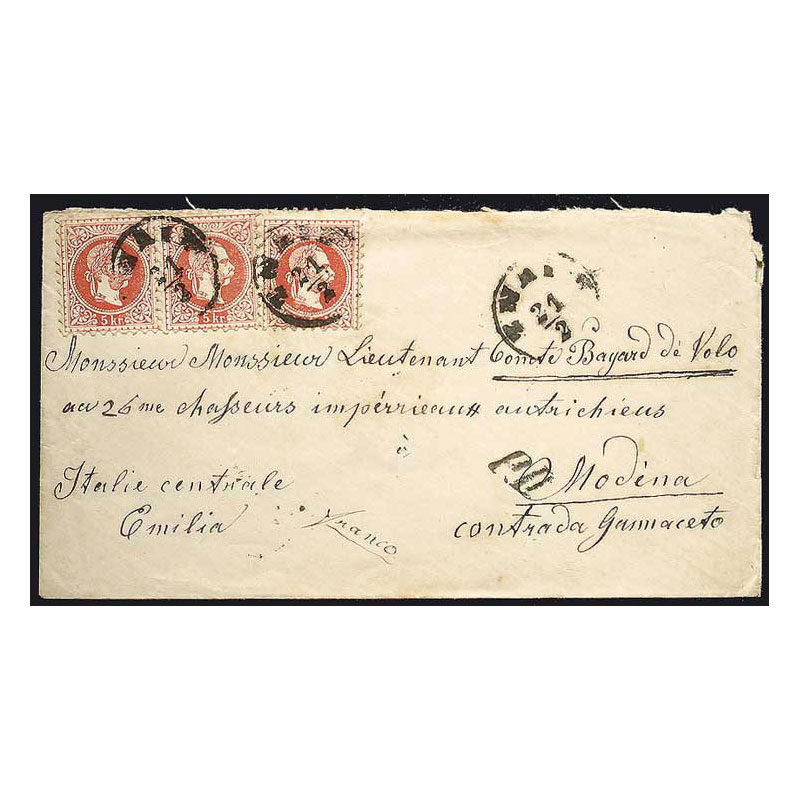 5 kr. 5 kr.
21/2 21/2 21/2
Monssieur Monssieur Lieutenant Comte Bayard dé Volo
au 26me chasseurs impérrieaux autrichiens
à
PD
Modéna
Italie centrale
Emilia
Franco
contrada Gannaceto